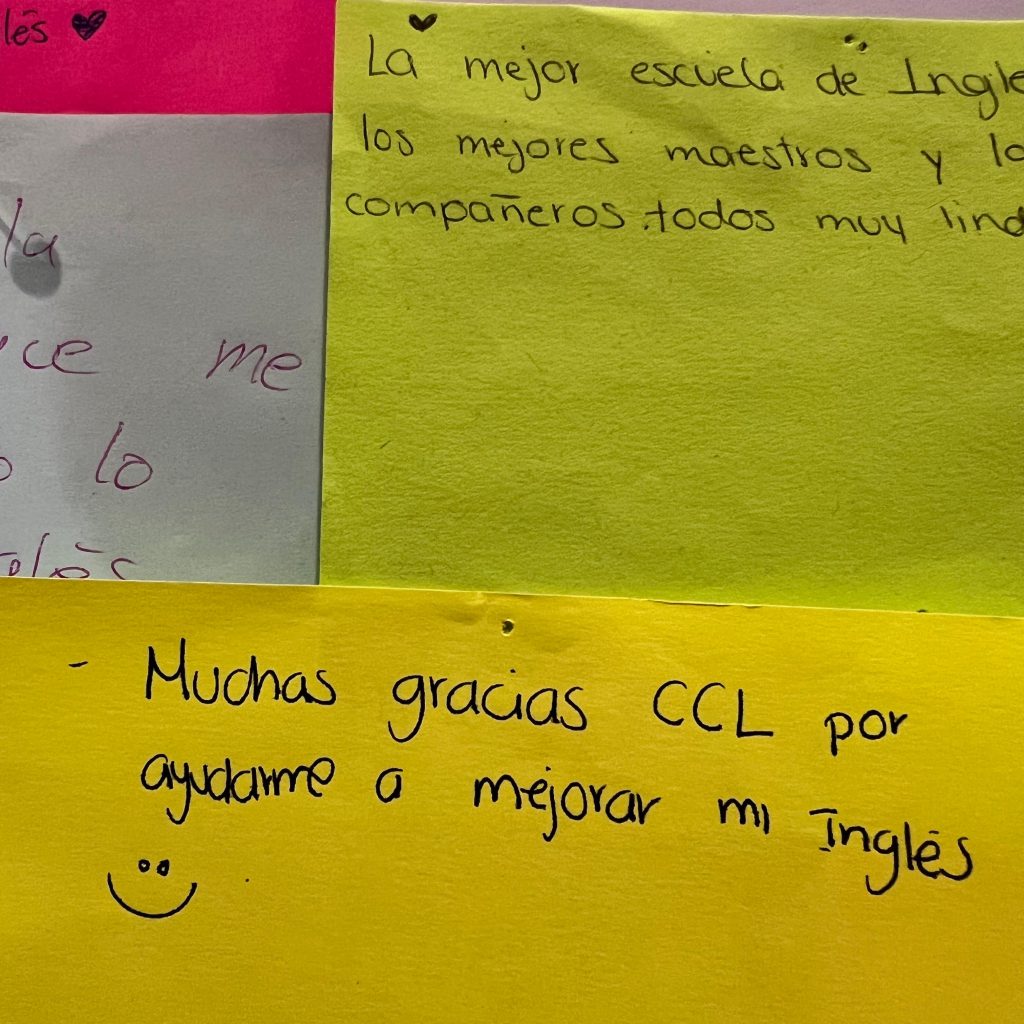 lés
La mejor escuela de Ingle
los mejores maestros y lo
compañeros.todos muy lind
la
ce me
lo
- Muchas gracias CCL por
ayudarme a mejorar mi Inglés